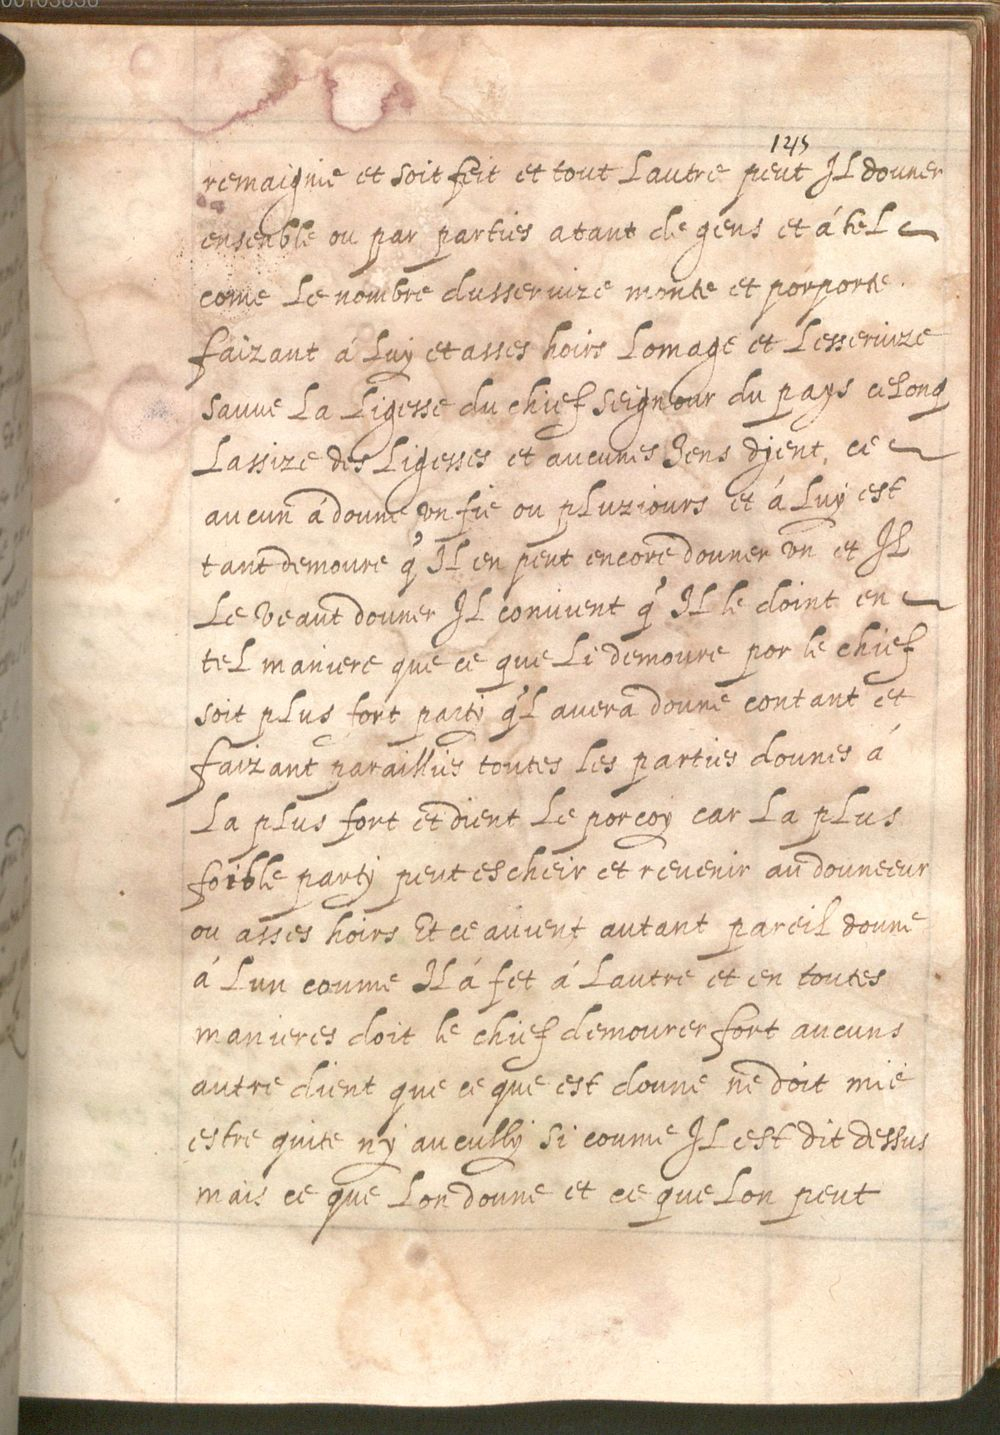 00103836
145
remaignie et soit feit et tout Lautre peut JL donner
ensenble ou par parties atant de gens et á teL
come Le nombre dusseruize monte et porporte.
faizant á Luy et asses hoirs Lomage et Lesseruize
sauve La Ligesse du chief seigneour du pays celonq
Lassize des Ligesses et aucunes Jens dyent, ce
aucun á donne vn fie ou pLuziours et á Luy est
tant demoure q' JL en peut encore donner vn et JL
Le veaut donner JL convient q' JL le doint en
teL maniere que ce que Li demoure por le chief
soit pLus fort party q'L avera donne contant et
faizant paraillies toutes Les parties dounes á
La pLus fort et dient Le porcoy car La pLus
foible party peut escheir et revenir au douneeur
ou asses hoirs Et ce avient autant pareiL donne
á Lun coume JL á fet á Lautre et en toutes
manieres doit le chief demourer fort aucuns
autre dient que ce que est doune ne doit mie
estre quite ny aucully si coume JL est dit dessus
mais ce que Lon doune et ce que Lon peut